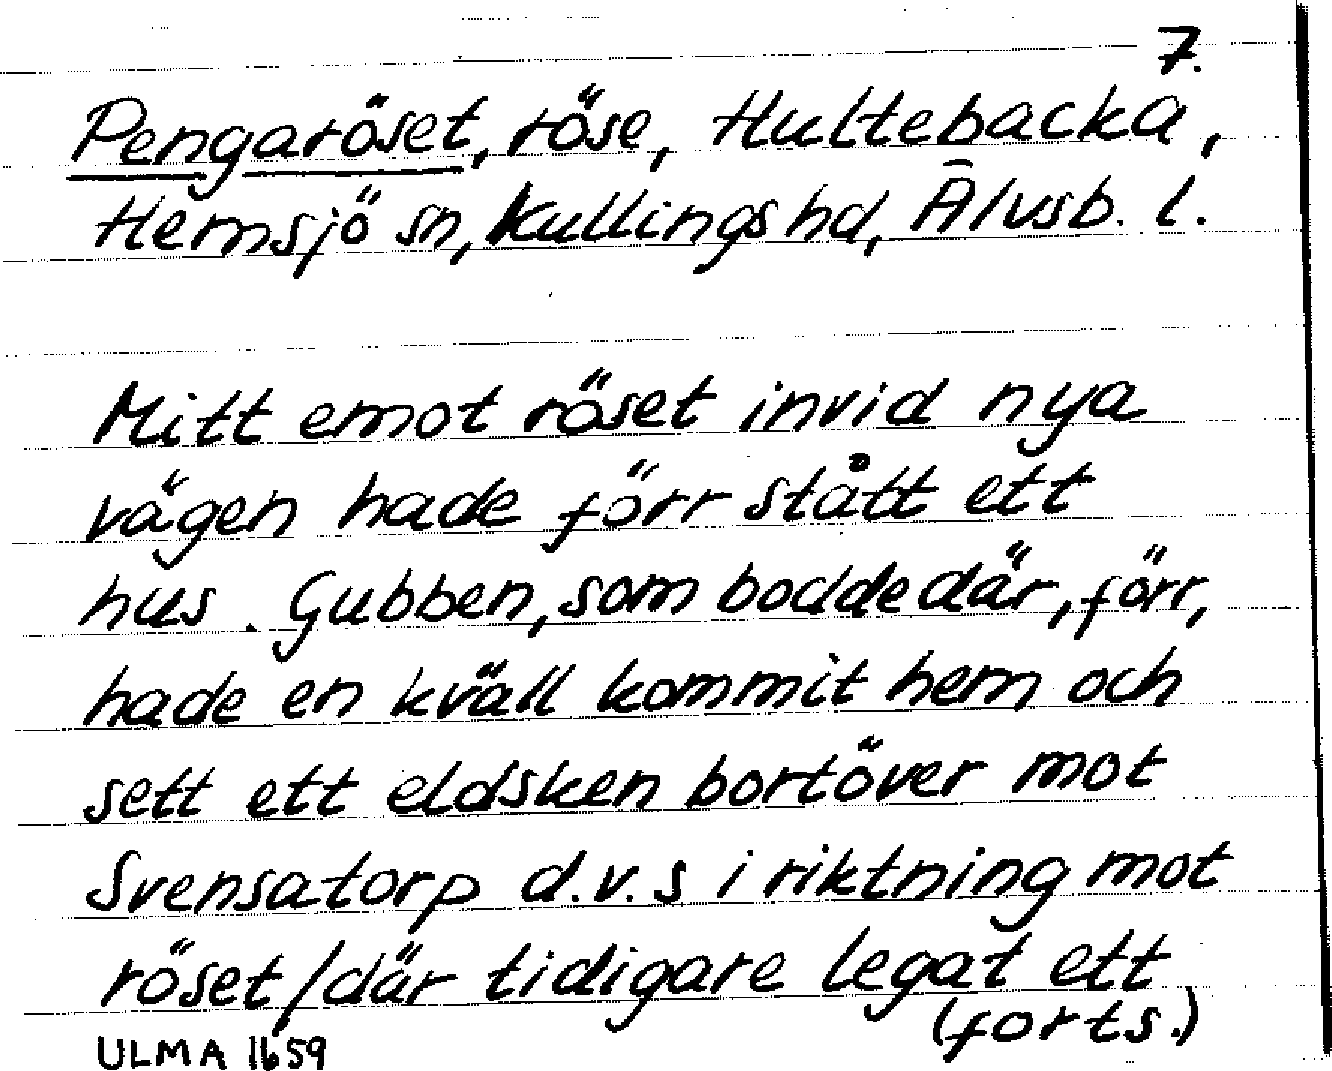 7.
Pengaröset, röse, Hultebacka,
Hemsjö sn, Kullings hd, Älvsb. l.
Mitt emot röset invid nya
vägen hade förr stått ett
hus. Gubben, som bodde där, förr,
hade en kväll kommit hem och
sett ett eldsken bortöver mot
Svensatorp d.v.s i riktning mot
röset/där tidigare legat ett
(forts.)
ULMA 1659